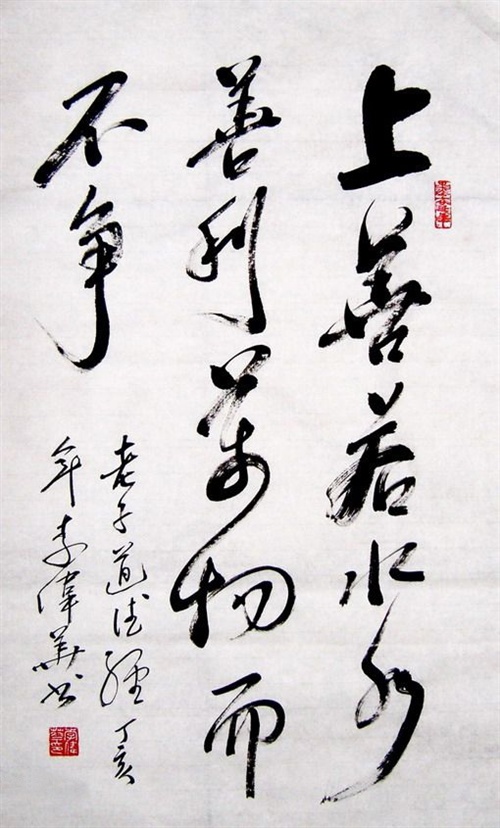 上善若水水
善利萬物而
不争
老子道德經丁亥
年李偉華书